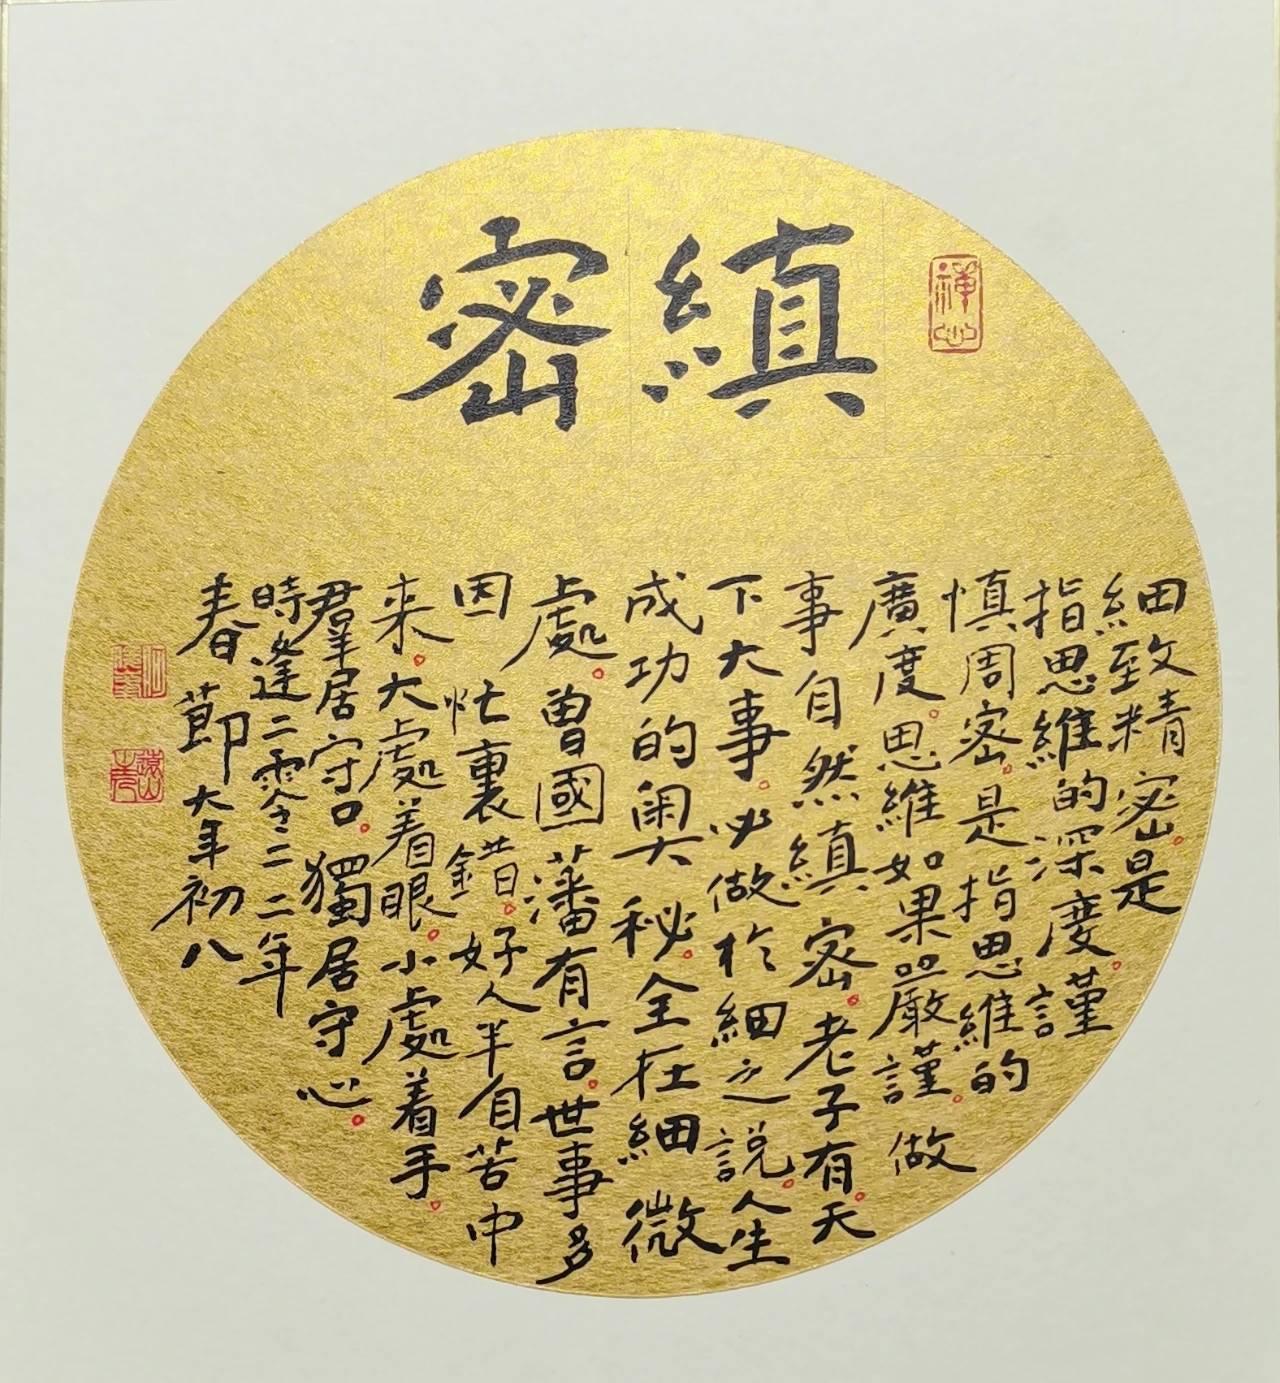 縝密
禅心
細致精密。是
指思維的深度。謹
慎周密。是指思維的
廣度。思維如果嚴謹。做
事自然縝密。老子有。天
下大事。必做於細之説。人生
成功的奥秘。全在細微
處。曾國藩有言。世事多
因忙裏錯。好人半自苦中
来。大處着眼。小處着手。
羣居守口。獨居守心。
時逢二零二二年
春節大年初八